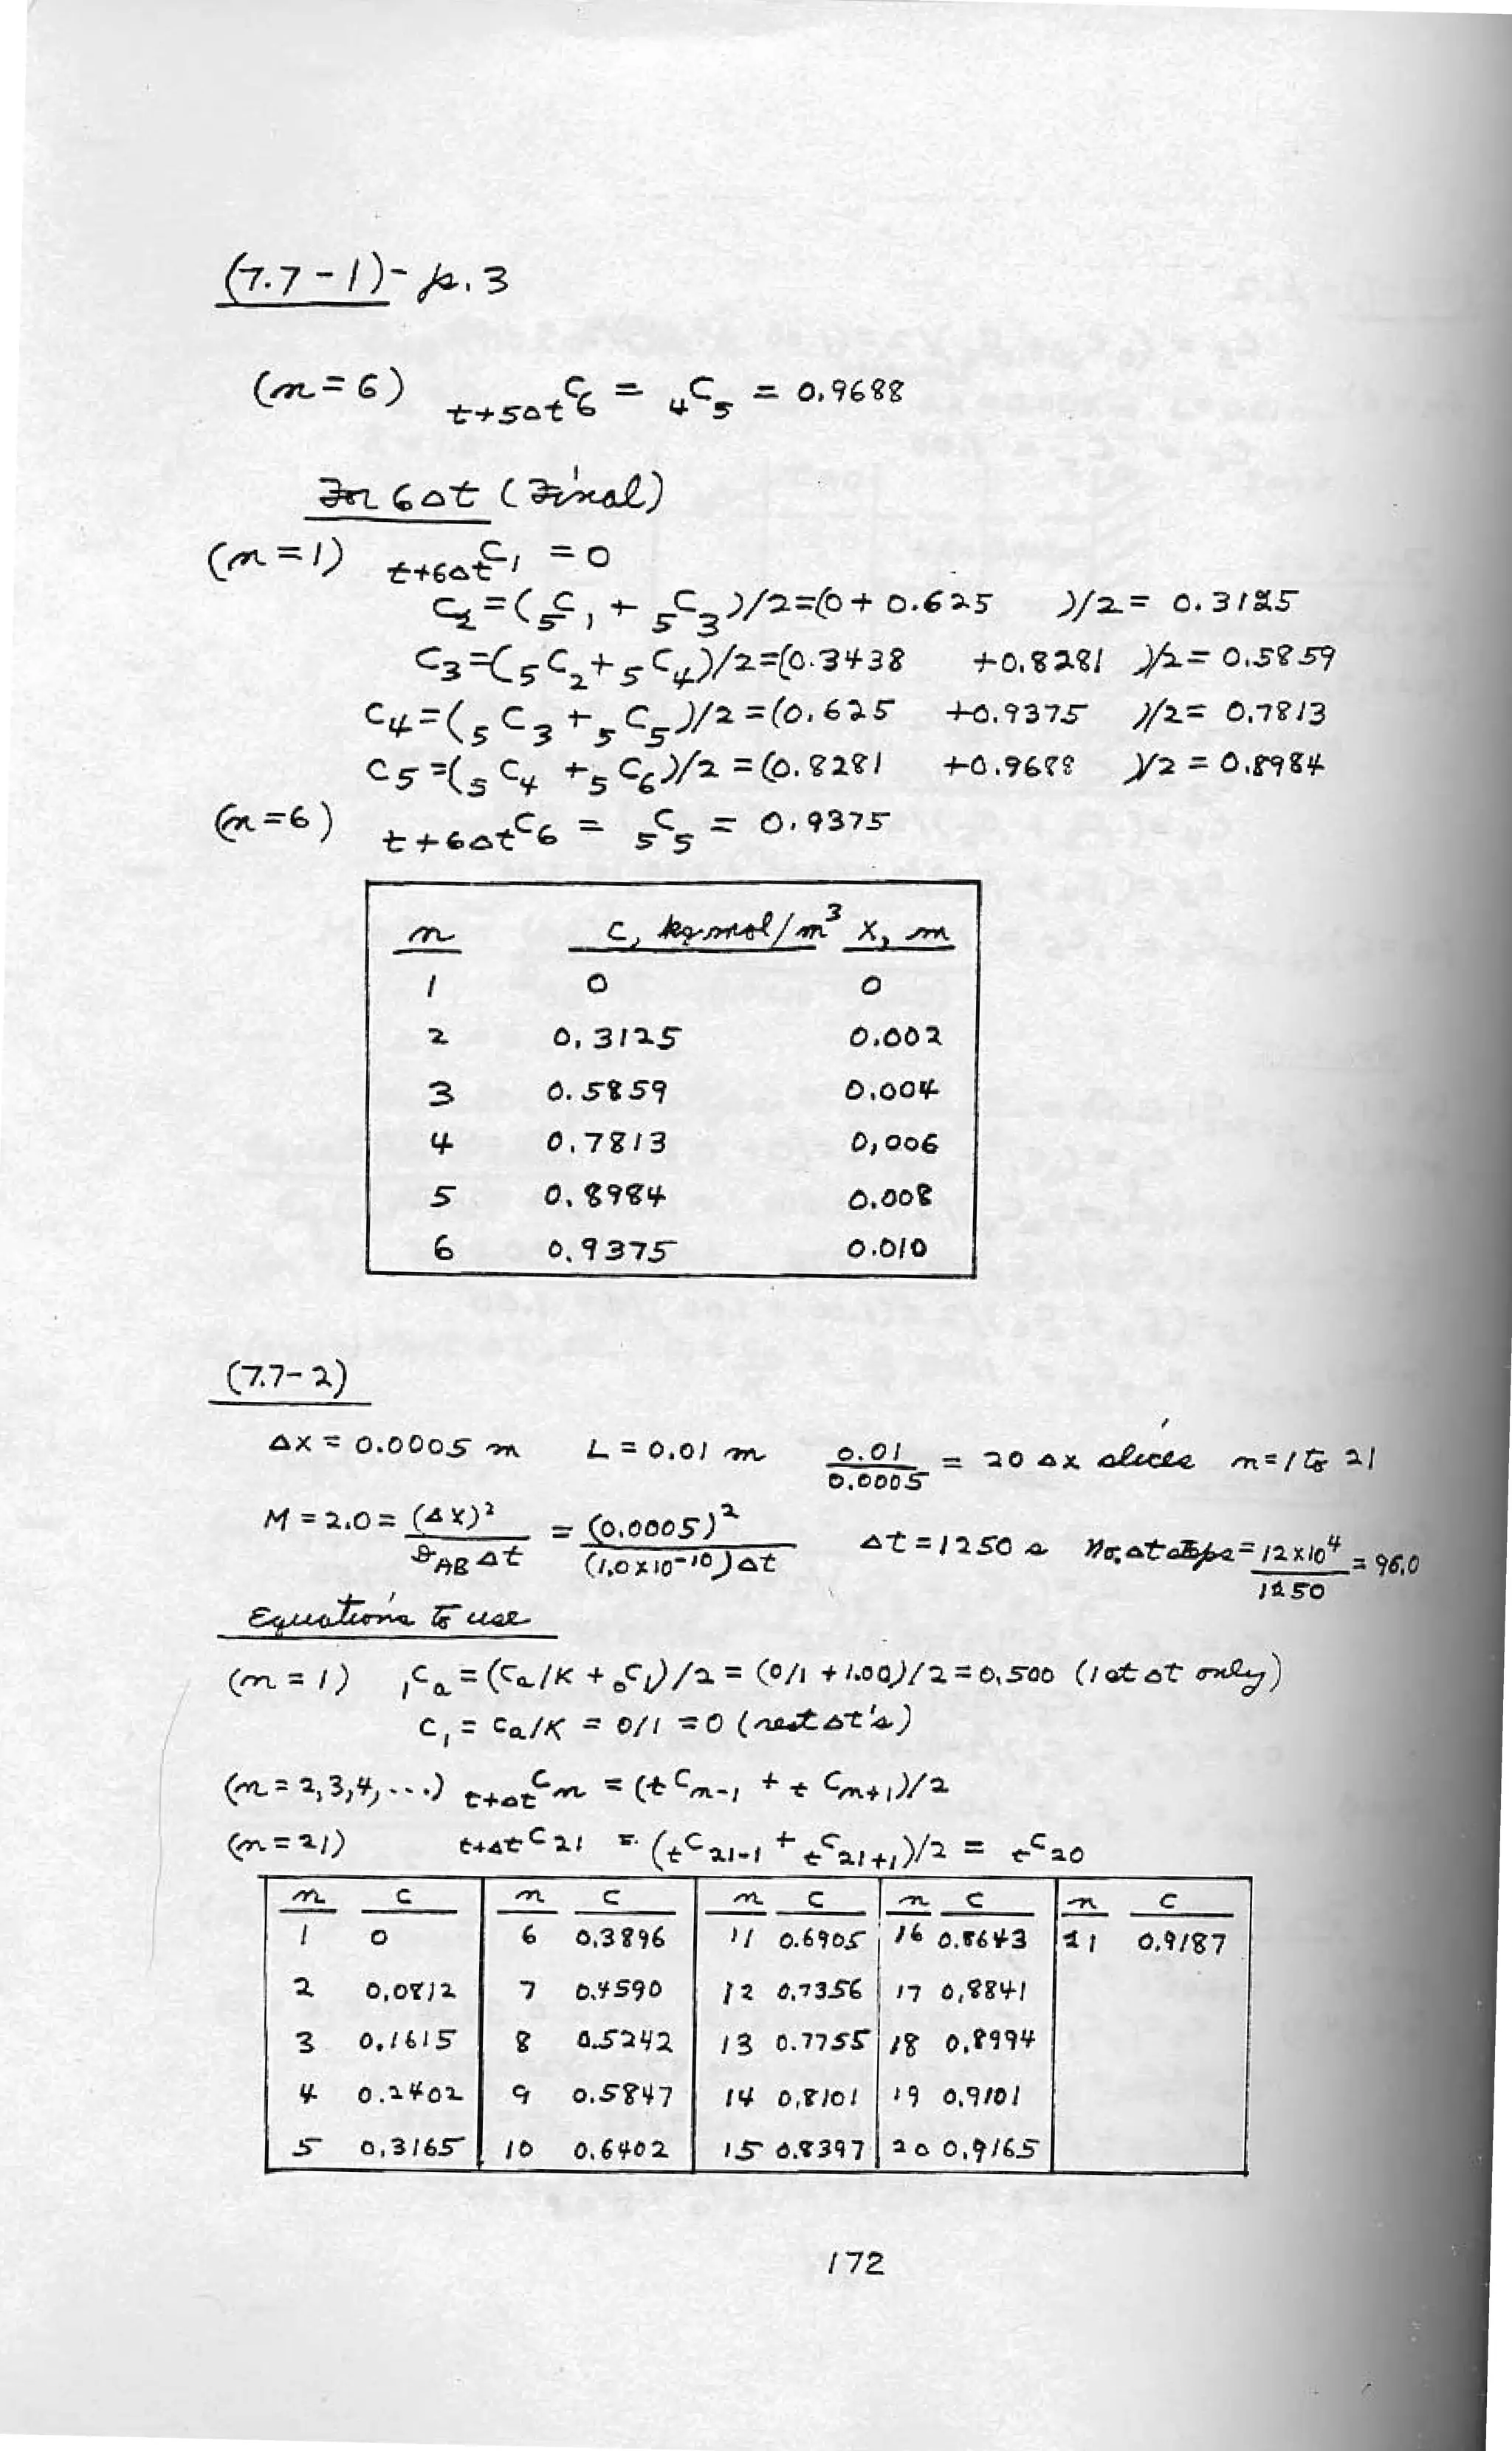 (7.7-1)- p.3
(n=6) t+5Δt C6 = 4C5 = 0.9688
In 6Δt (Final)
(n=1) t+6Δt C1 = 0
C2=(5C1 + 5C3)/2=(0+0.625 )/2= 0.3125
C3=(5C2+5C4)/2=(0.3438 +0.8281 )/2= 0.5859
C4=(5C3+5C5)/2=(0.625 +0.9375 )/2= 0.7813
C5=(5C4 +5C6)/2=(0.8281 +0.9688 )/2= 0.8984
(n=6) t+6Δt C6 = 5C5 = 0.9375
n c, kg mol/m³ x, m
1 0 0
2 0.3125 0.002
3 0.5859 0.004
4 0.7813 0.006
5 0.8984 0.008
6 0.9375 0.010
(7.7-2)
Δx = 0.0005 m L = 0.01 m 0.01/0.0005 = 20 Δx slices n=1 to 21
M = 2.0 = (Δx)²/(D_AB Δt) = (0.0005)²/((1.0x10⁻¹⁰)Δt) Δt = 1250 s No. Δt steps = 12x10⁴/1250 = 96.0
Equations to use
(n=1) 1Ca = (Ca/K + 0C1)/2 = (0/1 + 1.00)/2 = 0.500 (1st Δt only)
C1 = Ca/K = 0/1 = 0 (rest Δt's)
(n=2,3,4,...) t+Δt Cn = (tCn-1 + tCn+1)/2
(n=21) t+Δt C21 = (tC21-1 + tC21+1)/2 = tC20
n c n c n c n c n c
1 0 6 0.3896 11 0.6905 16 0.8643 21 0.9187
2 0.0812 7 0.4590 12 0.7356 17 0.8841
3 0.1615 8 0.5242 13 0.7755 18 0.8994
4 0.2402 9 0.5847 14 0.8101 19 0.9101
5 0.3165 10 0.6402 15 0.8397 20 0.9165
172